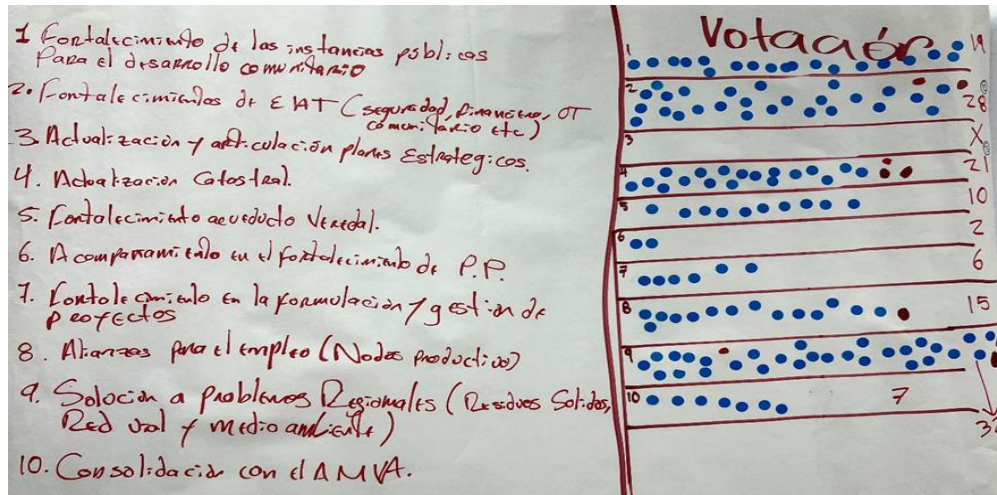 1 Fortalecimiento de las instancias públicas
Para el desarrollo comunitario
2. Fortalecimientos de EHT (seguridad, financiero, OT
comunitario etc)
3. Actualización y articulación planes Estrategicos.
4. Actualización Catastral.
5. Fortalecimiento acueducto Veredal.
6. Acompañamiento en el fortalecimiento de P.P.
7. Fortolecimiento en la formulación y gestion de
proyectos
8. Alianzas para el empleo (Nodos productivos)
9. Solución a problemas Regionales (Residuos Solidos,
Red vial y medio ambiente)
10. Consolidación con el AMVA.
Votación
1 19
2 28
3 X
4 21
5 10
6 2
7 6
8 15
9
10 7